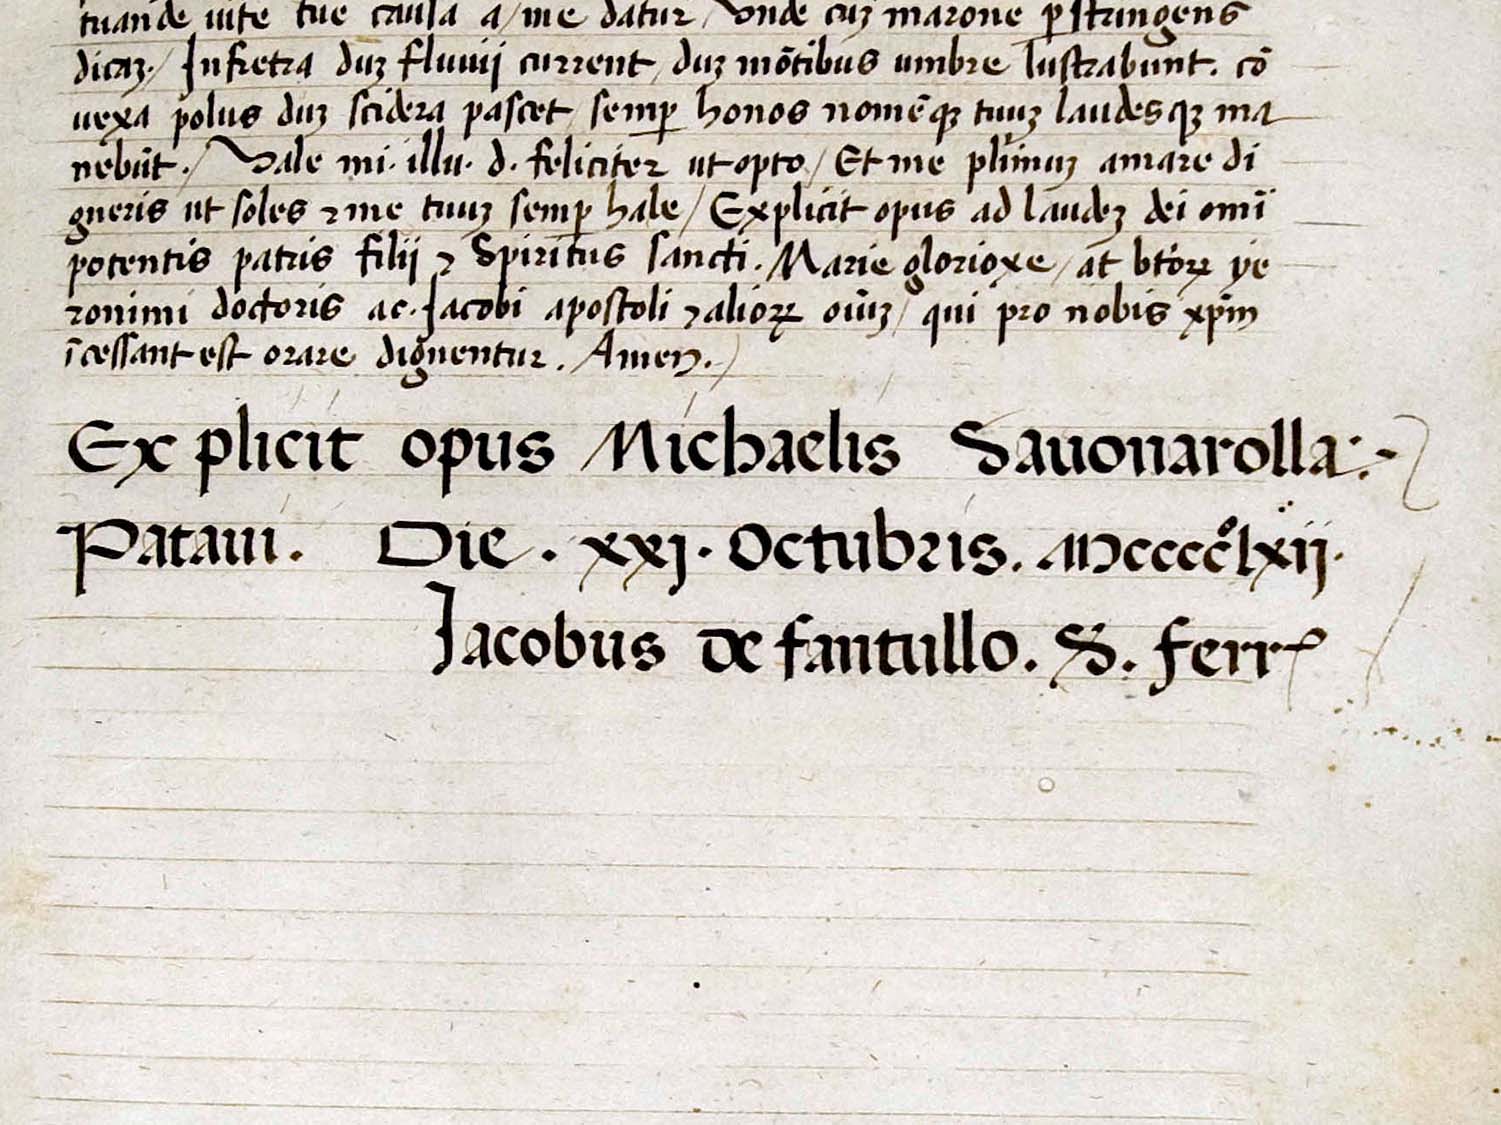 tuande uite tue causa a/me datur/ Vnde cuꝫ marone ꝑstringens
dicaꝫ·/ Infretra duꝫ fluuij current/ duꝫ mōtibus umbre lustrabunt. cō
uexa polus duꝫ scidera pascet/ semꝑ honos nomēqꝫ tuuꝫ laudesqꝫ ma
nebūt·/ Vale mi· illu· d· feliciter ut opto/ Et me plīmuꝫ amare di
gneris ut soles ⁊ me tuuꝫ semꝑ habe/ Explicit opus ad laudeꝫ dei omī
potentis patris filij ⁊ Spiritus sancti. Marie glorioxe/ at btōꝝ ye
ronimi doctoris ac· Jacobi apostoli ⁊ alioꝝ oīuꝫ/ qui pro nobis xp̄m
īcessant est orare dignentur. Amen./
Explicit opus Michaelis Sauonarolla:-
Pataui. Die. xxj. Octubris. Mccccºlxij.
Jacobus de fantullo. S. ferr